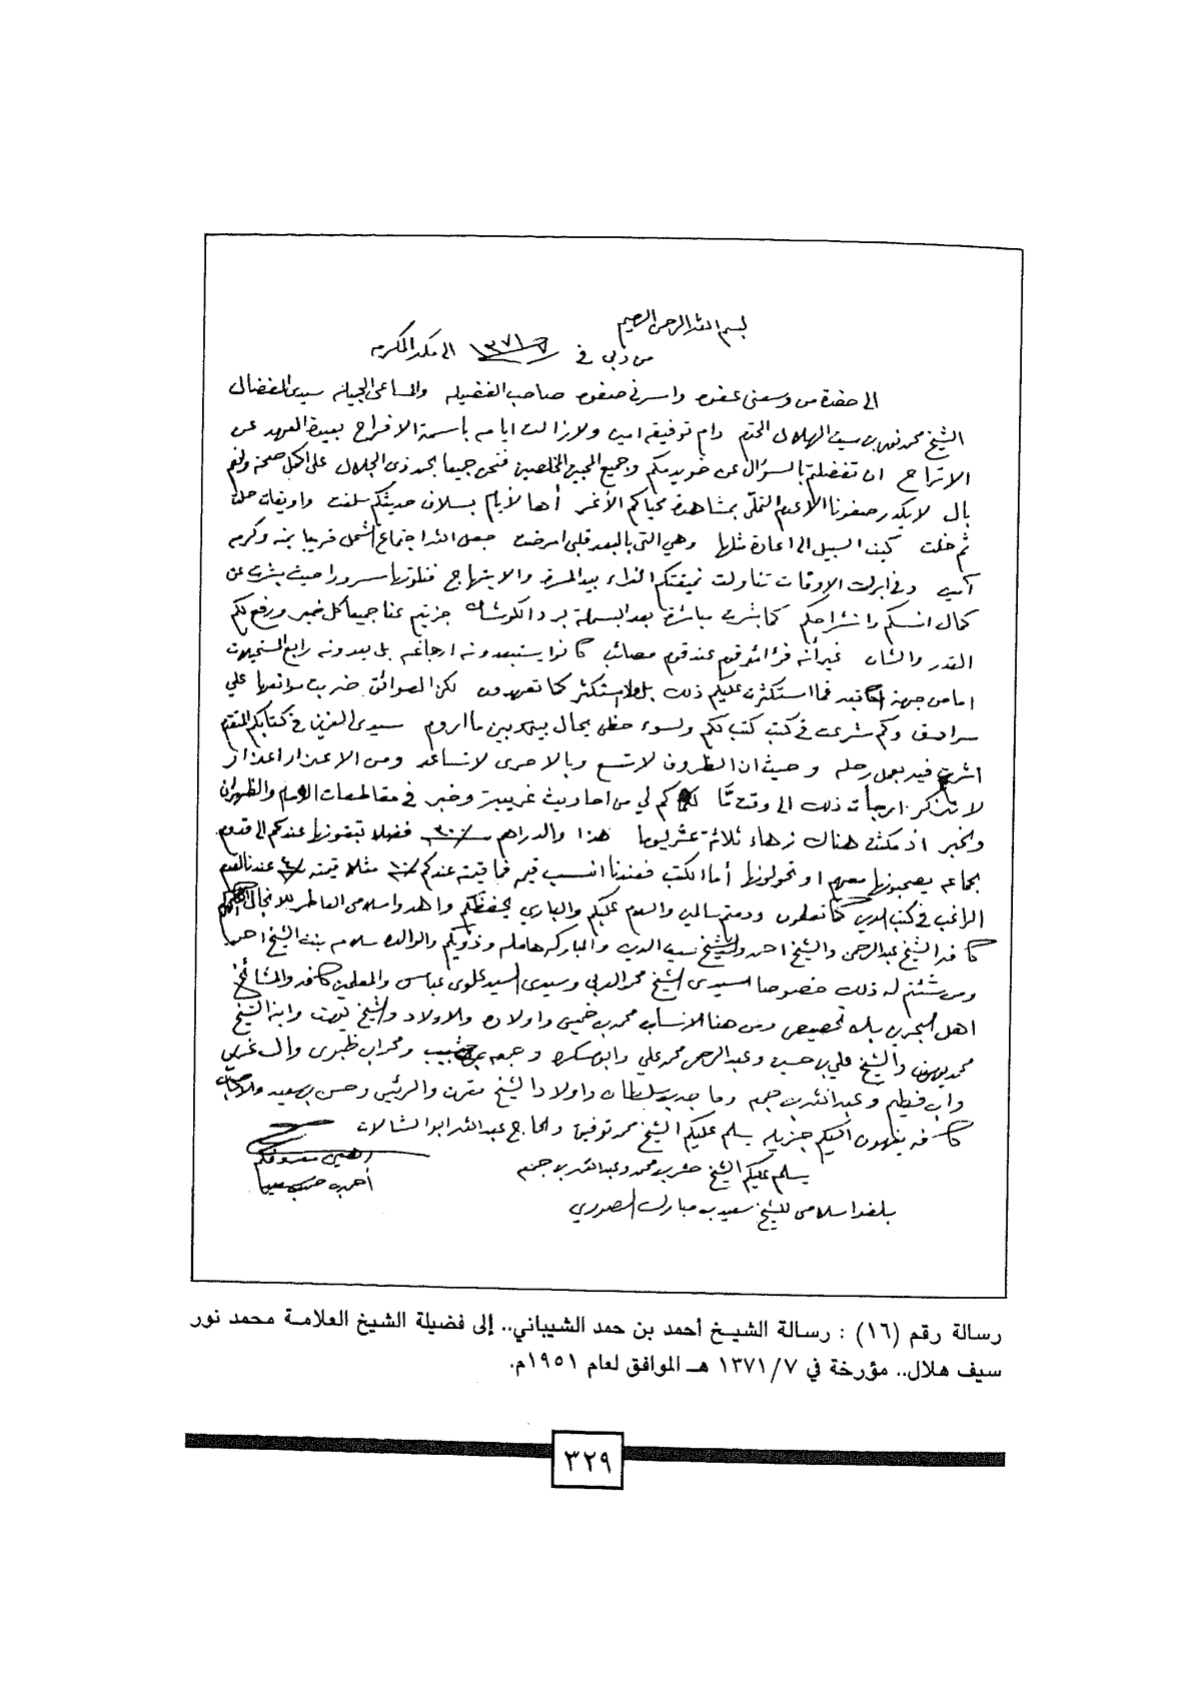 بسم الله الرحمن الرحيم
من دبي في ١٣٧١/٧ الى مكة المكرمه
الى حضرة من وسعني عفوه واسرني صفوه صاحب الفضيله والمساعي الجميله سيدي المفضال
الشيخ محمد نور بن سيف الهلال المحترم دام توفيقه امين ولا زالت ايامه باسمة الافراح بعيدة العهد عن
الاتراح ان تفضلتم بالسؤال عن خويدمكم وجميع المحبين المخلصين فنحن جميعا بحمد ذي الجلال على اكمل صحة وانعم
بال لا يكدر صفونا الا عدم التملّي بمشاهدة محياكم الأغر أها لأيام بسلاف حديثكم سلفت واويقات حلت
ثم خلت كيف السبيل الى اعادة مثلها وهي التي بالبعد قلبي امرضت جعل الله اجتماع الشمل قريبا بمنه وكرمه
آمين وفي ابرك الاوقات تناولت نميقتكم الغراء بيد المسرة والابتهاج فتلوتها سرورا حيث بشرت عن
كمال انسكم وانشراحكم كما بشرت مباشرة بعد البسملة برد الكوشان جزيتم عنا جميعا كل خير ورفع لكم
القدر والشان غير أنه فوائد قوم عند قوم مصائب كانوا يستبعدونه ارجاعه بل يعدونه رابع المستحيلات
اما من جهة فما استكثرت عليكم ذلك بل ولا استكثر كما تعهدون لكن العوائق ضربت مواقعها علي
وكم شرعت في كتب كتب لكم ولسوء حظي يحال بيني وبين ما اروم سيدي العزيز في كتابكم المتقدم
اشرت فيه بعمل رحله وحيث ان الظروف لا تسع وبالاحرى لا تساعد ومن الاعذار اعذار
لا تذكر ارجأت ذلك الى وقت مّا كم لي من احاديث غريبة وخبر في مقاطعات الدمام والظهران
والخبر اذ مكثت هناك زهاء ثلاثة عشر يوما هذا والدراهم ٣٠٠ فضلا تبقونها عندكم الى قدوم
جماعه يصحبونها معهم او تحولونها أما الكتب فعندنا انسب قيم فما قيمته عندكم ١٠ مثلا قيمته عندنا
الراغب في كتب الدين كما تعلمون ودمتم سالمين والسلام عليكم والباري يحفظكم واهدوا سلامي العاطر للانجال
كافة الشيخ عبد الرحمن والشيخ احمد والشيخ سيف الدين والمباركه فاطمه وذويكم والوالده سلامه بنت الشيخ احمد
ومن شئتم له ذلك خصوصا سيدي الشيخ محمد العربي وسيدي السيد علوي عباس والمعلمين كافه والمشائخ
اهل البحرين بلا تخصيص ومن هنا الانساب محمد بن خميس واولاده والاولاد والشيخ وابنه الشيخ
محمد يوسف والشيخ علي بن حسين وعبد الرحمن محمد علي وابن سكره وجمعه بن
وابن فطيم وعبد الله بن جمعه وماجد بن سلطان واولاد الشيخ مقرن والرئيس وحسن بن سعيد
كافه ينهون اليكم جزيله يسلم عليكم الشيخ محمد توفيق والحاج عبد الله ابو الشالات
يسلم عليكم الشيخ حشر بن محمد وعبد الله بن جمعه
أحمد بن حمد
بلغوا سلامي للشيخ سعيد بن مبارك المنصوري
رسالة رقم (١٦) : رسالة الشيخ أحمد بن حمد الشيباني.. إلى فضيلة الشيخ العلامة محمد نور
سيف هلال.. مؤرخة في ١٣٧١/٧ هـ الموافق لعام ١٩٥١م.
٣٢٩